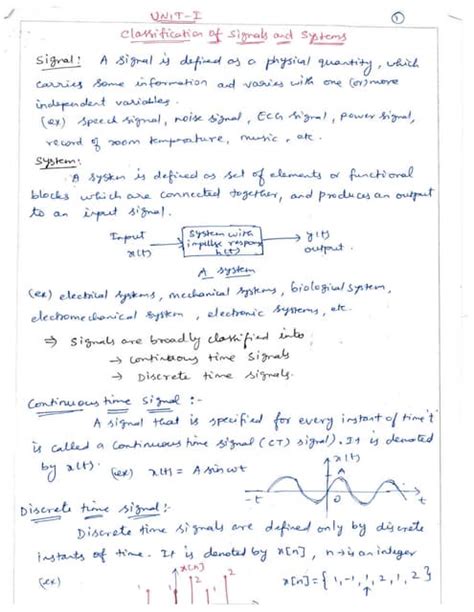 UNIT-I
①
Classification of Signals and Systems
Signal: A signal is defined as a physical quantity, which
carries some information and varies with one (or) more
independent variables.
(ex) speech signal, noise signal, ECG signal, power signal,
record of room temperature, music, etc.
System:
A system is defined as set of elements or functional
blocks which are connected together, and produces an output
to an input signal.
Input x(t) → System with impulse respon h(t) → y(t) output.
A system
(ex) electrical systems, mechanical systems, biological system,
electromechanical system, electronic systems, etc.
⇒ Signals are broadly classified into
→ Continuous time signals
→ Discrete time signals.
Continuous time signal :-
A signal that is specified for every instant of time 't'
is called a continuous time signal (CT) signal). It is denoted
by x(t). (ex) x(t) = A sin ωt
x(t)
A
-t 0 t
Discrete time signal:-
Discrete time signals are defined only by discrete
instants of time. It is denoted by x[n], n → is an integer
(ex) x[n] x[n] = { 1, -1, 1, 2, 1, 2 }
1 1 2 1 2